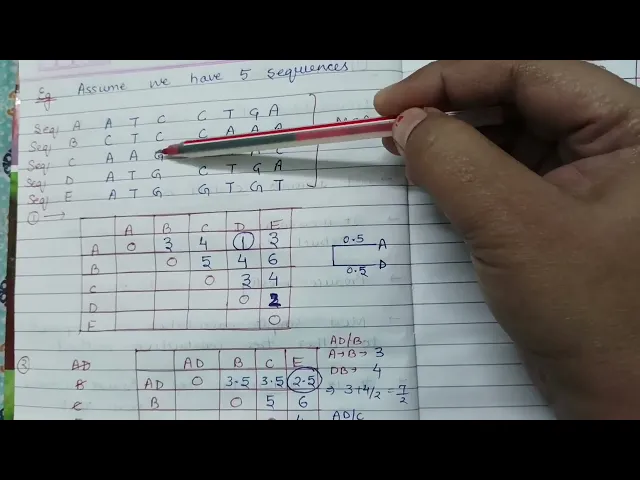 Eg Assume we have 5 sequences
Seq A A T C C T G A
Seq B C T C C A A A
Seq C A A G
Seq D A T G C T G A
Seq E A T G G T G T
①→
A B C D E
A 0 3 4 1 3
B 0 5 4 6
C 0 3 4
D 0 2
E 0
0.5 A
0.5 D
② AD
B
C
AD B C E
AD 0 3.5 3.5 2.5
B 0 5 6
AD/B
A→B→ 3
DB→ 4
⇒ 3+4/2 = 7/2
AD/C